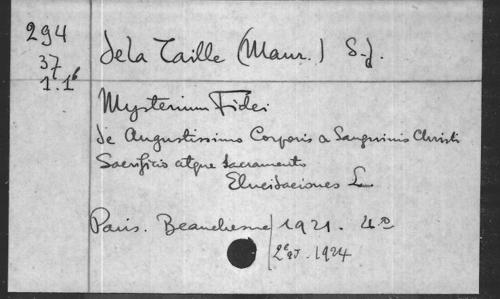 294
37
1.1⁶
de la Taille (Maur.) S.J.
Mysterium Fidei
de Augustissimo Corporis a Sanguinis Christi
Sacrificio atque Sacramento
Elucidaciones L
Paris. Beauchesne 1921. 4º
2ᵉ éd. 1924